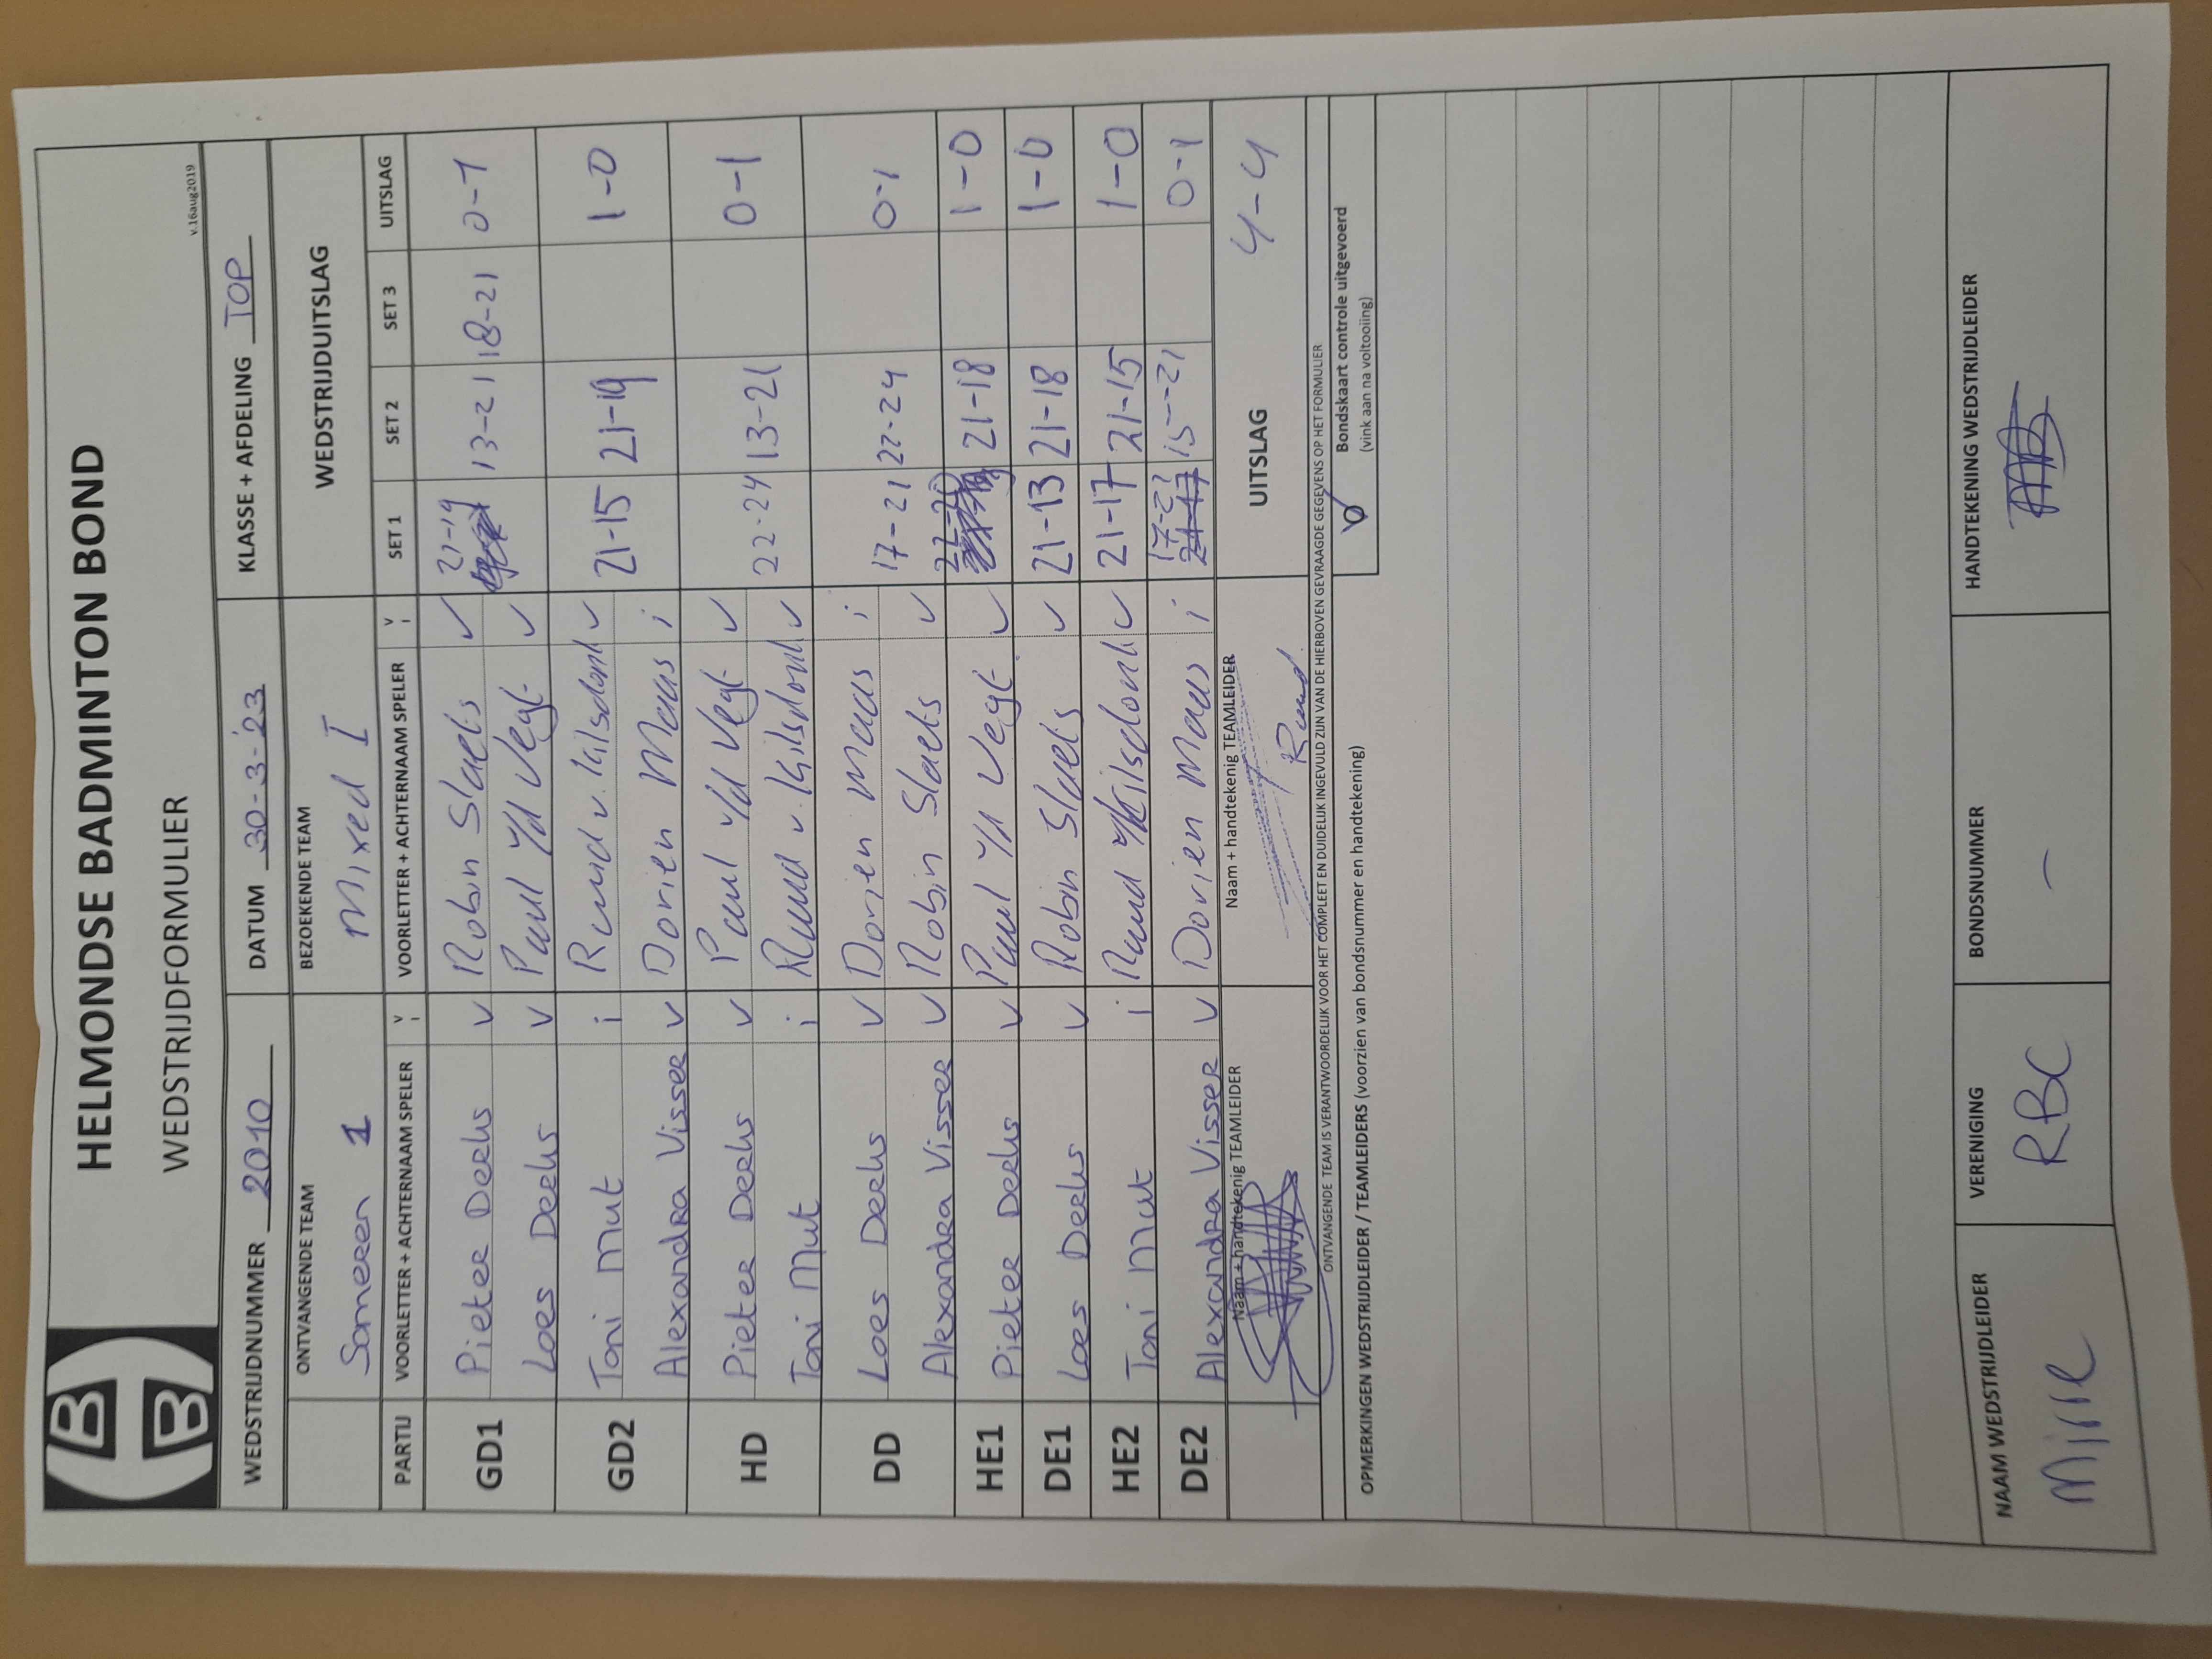 HELMONDSE BADMINTON BOND
WEDSTRIJDFORMULIER
v.16aug2019
WEDSTRIJDNUMMER 2010 DATUM 30-3-'23 KLASSE + AFDELING TOP
ONTVANGENDE TEAM BEZOEKENDE TEAM WEDSTRIJDUITSLAG
Someren 1 Mixed I
PARTIJ VOORLETTER + ACHTERNAAM SPELER V i VOORLETTER + ACHTERNAAM SPELER V i SET 1 SET 2 SET 3 UITSLAG
GD1 Pieter Derks v Robin Slaets v 21-19 13-21 18-21 0-1
Loes Derks v Paul v/d Vegt v
GD2 Toni Mut i Ruud v. Kilsdonk v 21-15 21-19 1-0
Alexandra Visser v Dorien Maas i
HD Pieter Derks v Paul v/d Vegt v 22-24 13-21 0-1
Toni Mut i Ruud v. Kilsdonk v
DD Loes Derks v Dorien Maas i 17-21 22-24 0-1
Alexandra Visser v Robin Slaets v
HE1 Pieter Derks v Paul v/d Vegt v 22-20 21-18 1-0
DE1 Loes Derks v Robin Slaets v 21-13 21-18 1-0
HE2 Toni Mut i Ruud v/Kilsdonk v 21-17 21-15 1-0
DE2 Alexandra Visser v Dorien Maas i 17-21 15-21 0-1
Naam + handtekenig TEAMLEIDER Naam + handtekenig TEAMLEIDER UITSLAG 4-4
Ruud
ONTVANGENDE TEAM IS VERANTWOORDELIJK VOOR HET COMPLEET EN DUIDELIJK INGEVULD ZIJN VAN DE HIERBOVEN GEVRAAGDE GEGEVENS OP HET FORMULIER
OPMERKINGEN WEDSTRIJDLEIDER / TEAMLEIDERS (voorzien van bondsnummer en handtekening) Bondskaart controle uitgevoerd
(vink aan na voltooiing)
NAAM WEDSTRIJDLEIDER VERENIGING BONDSNUMMER HANDTEKENING WEDSTRIJDLEIDER
RBC -